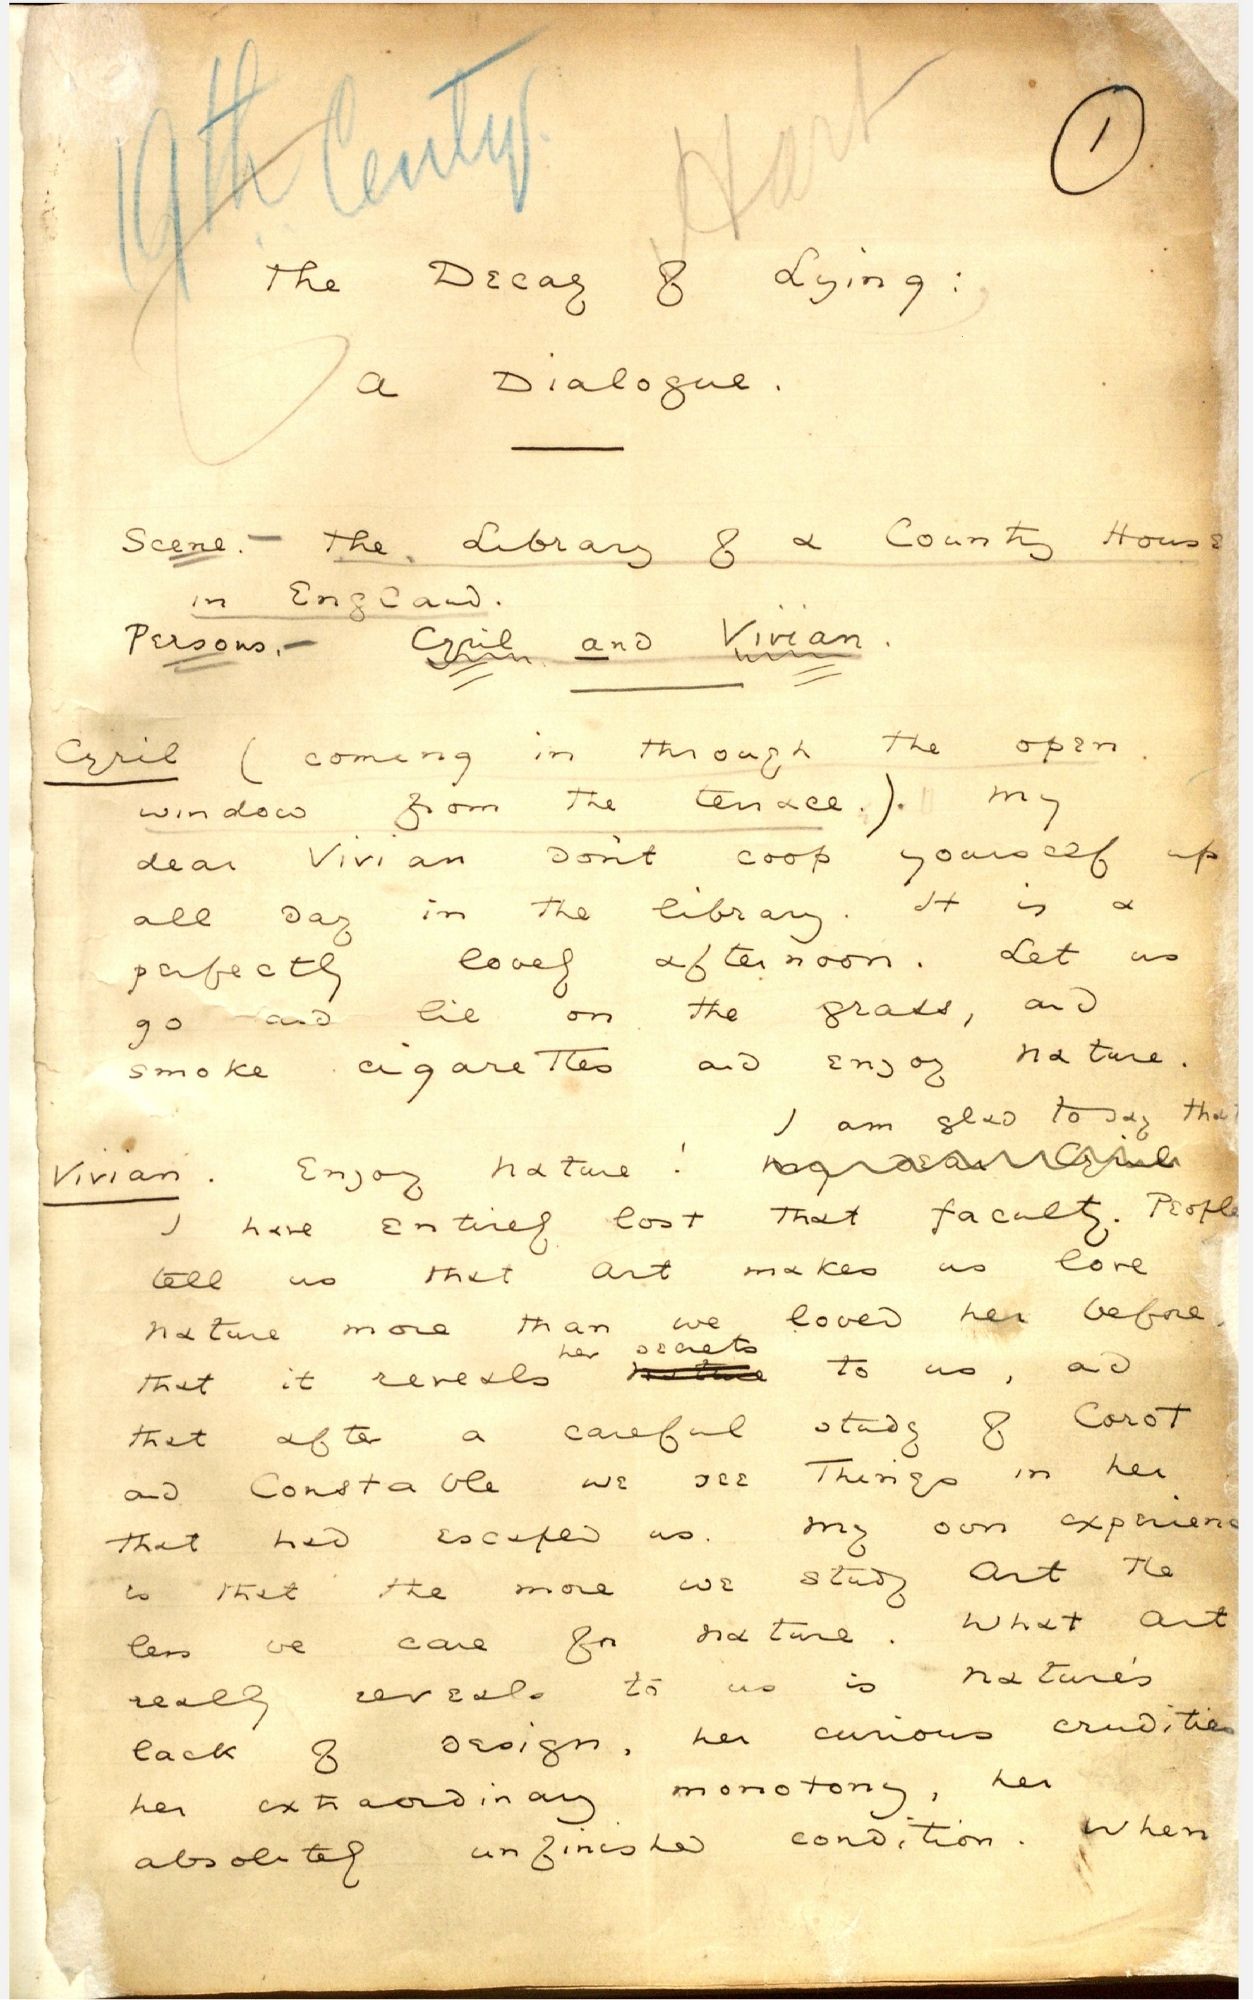 19th Centy.
Hart
1
The Decay of Lying:
a Dialogue.
Scene.– The Library of a Country House
in England.
Persons.– Cyril and Vivian.
Cyril (coming in through the open
window from the terrace.). My
dear Vivian don't coop yourself up
all day in the library. It is a
perfectly lovely afternoon. Let us
go and lie on the grass, and
smoke cigarettes and enjoy nature.
I am glad to say that
Vivian. Enjoy nature! my dear Cyril
I have entirely lost that faculty. People
tell us that Art makes us love
nature more than we loved her before,
her secrets
that it reveals nature to us, and
that after a careful study of Corot
and Constable we see things in her
that had escaped us. My own experience
is that the more we study Art the
less we care for nature. What Art
really reveals to us is nature's
lack of design, her curious crudities
her extraordinary monotony, her
absolutely unfinished condition. When